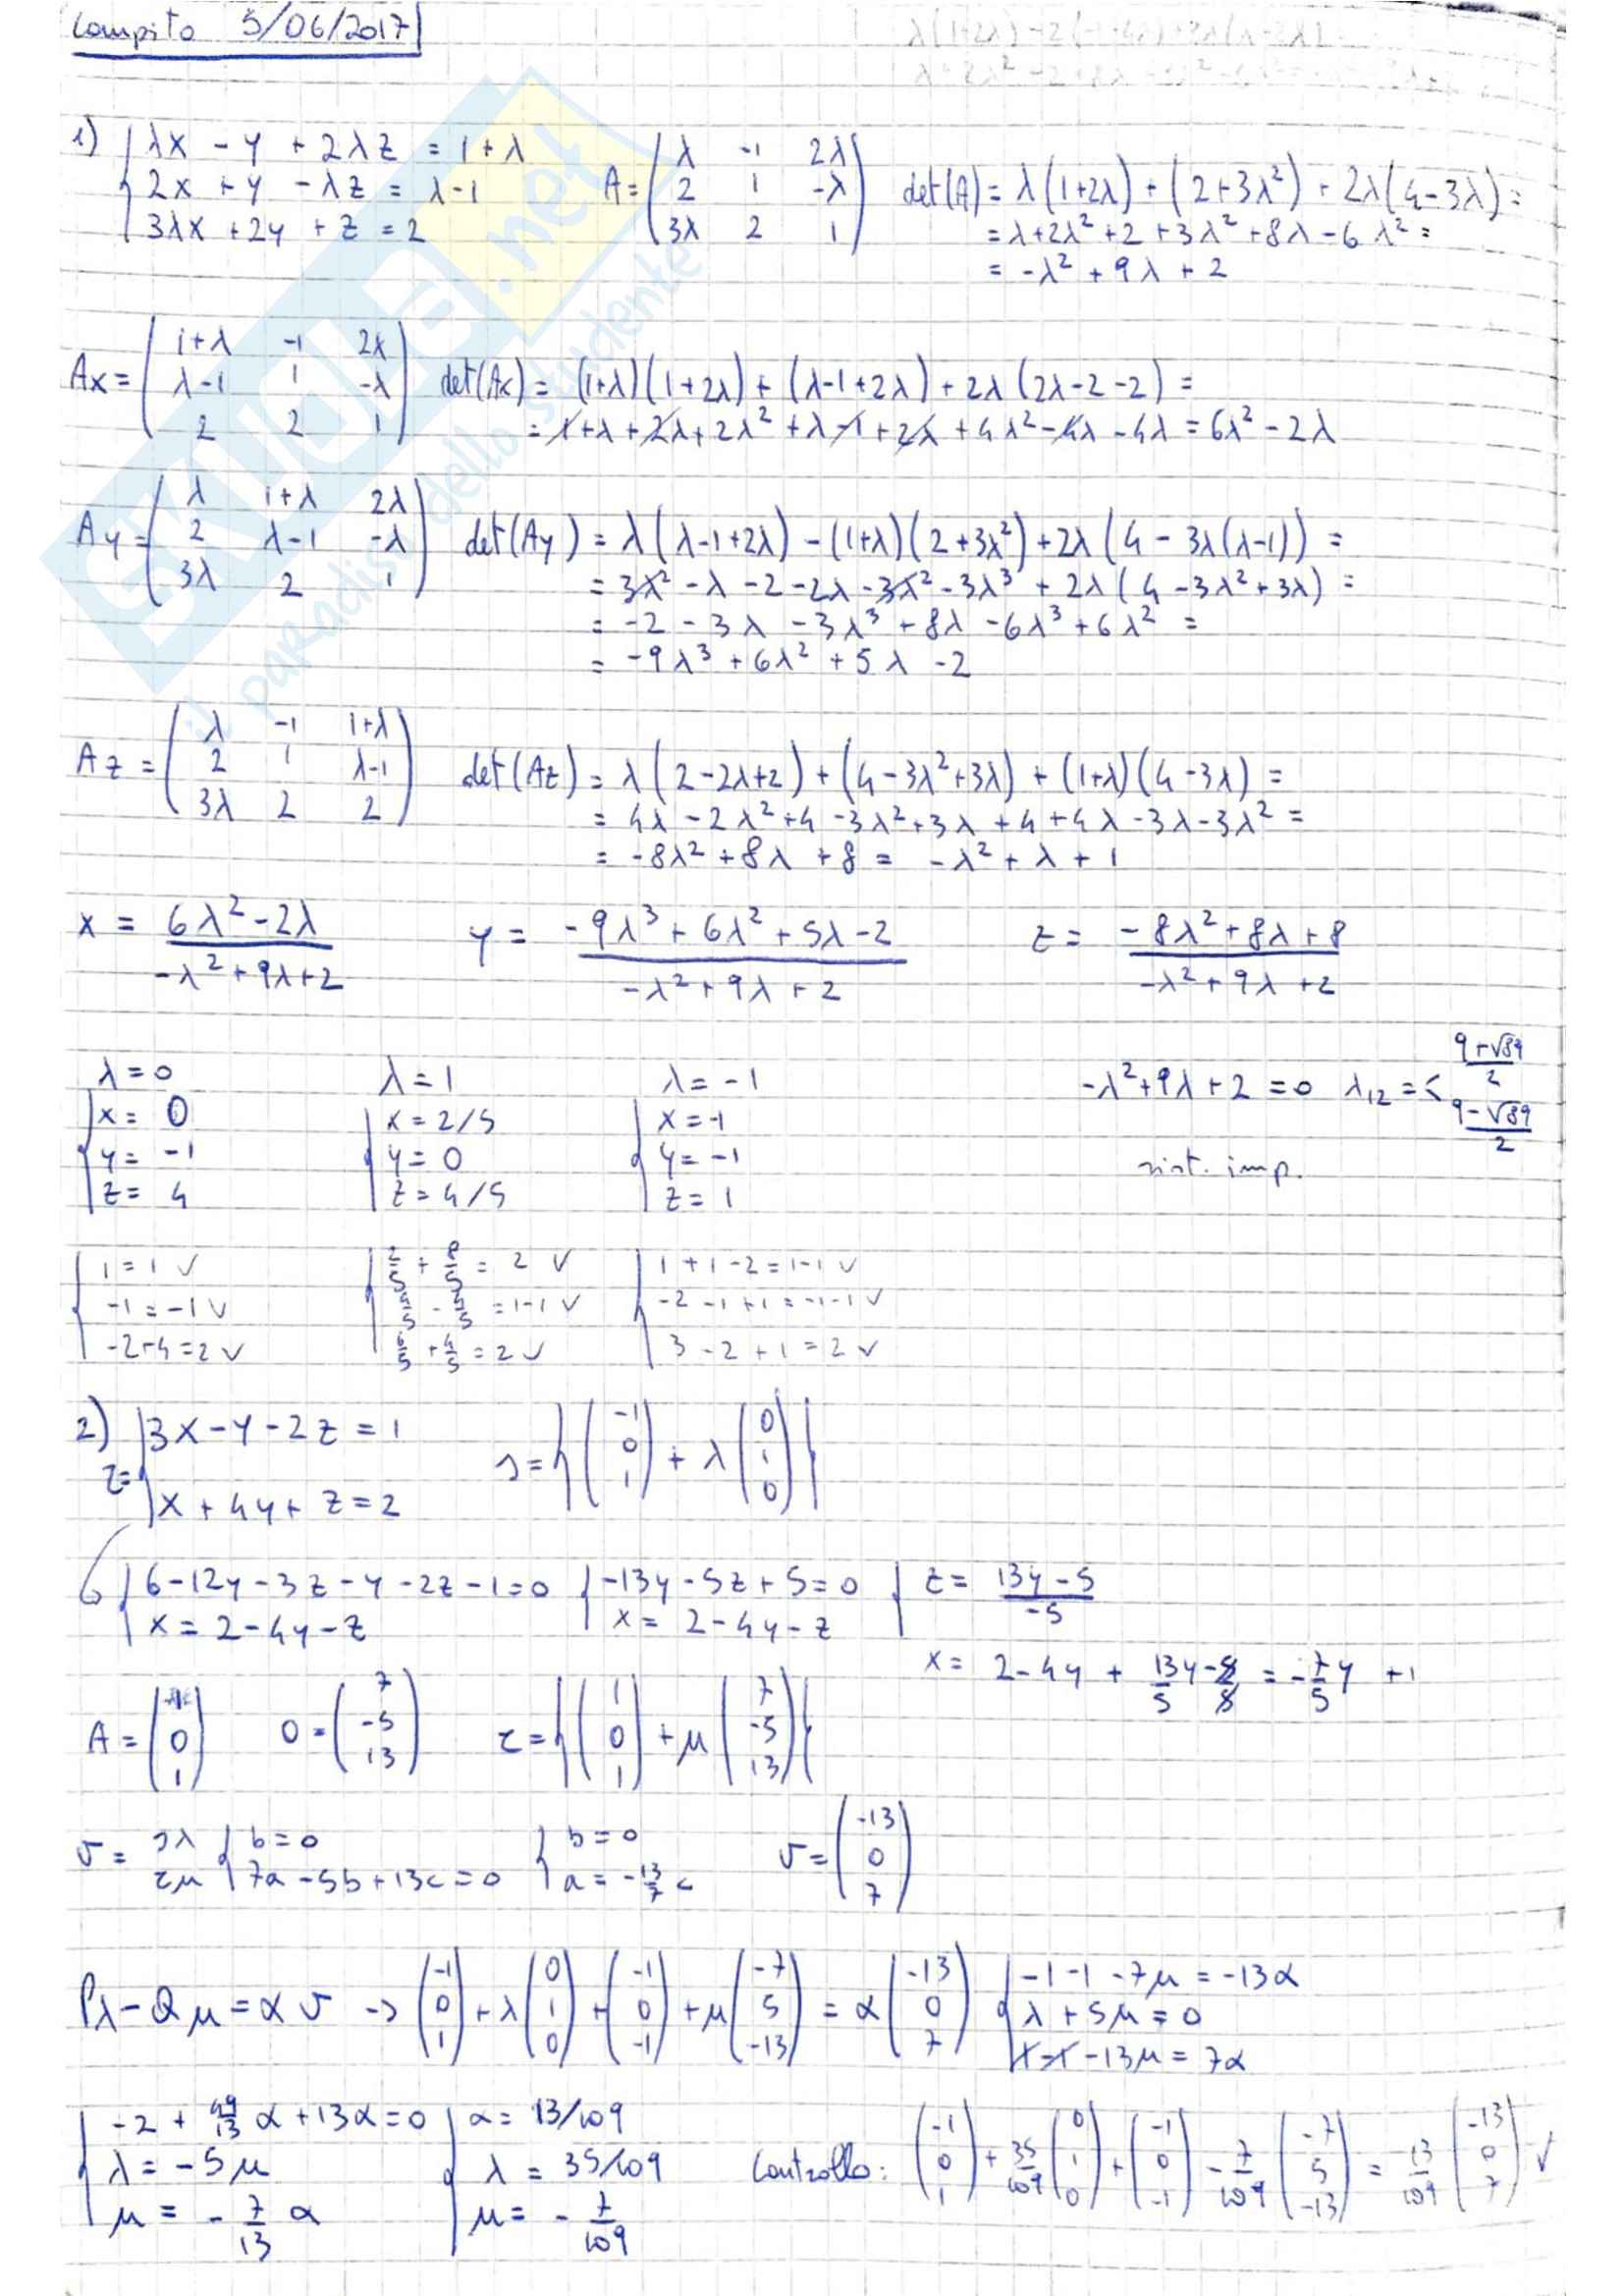 Compito 5/06/2017
1) { λx - y + 2λz = 1+λ
2x + y - λz = λ-1
3λx + 2y + z = 2
A = ( λ -1 2λ
2 1 -λ
3λ 2 1 )
det(A) = λ(1+2λ) + (2+3λ²) + 2λ(4-3λ) =
= λ+2λ²+2+3λ²+8λ-6λ² =
= -λ² + 9λ + 2
Ax = ( 1+λ -1 2λ
λ-1 1 -λ
2 2 1 )
det(Ax) = (1+λ)(1+2λ) + (λ-1+2λ) + 2λ(2λ-2-2) =
= 1+λ+2λ+2λ²+λ-1+2λ+4λ²-4λ-4λ = 6λ²-2λ
Ay = ( λ 1+λ 2λ
2 λ-1 -λ
3λ 2 1 )
det(Ay) = λ(λ-1+2λ) - (1+λ)(2+3λ²) + 2λ(4-3λ(λ-1)) =
= 3λ² - λ - 2 - 2λ - 3λ² - 3λ³ + 2λ(4-3λ²+3λ) =
= -2 - 3λ - 3λ³ + 8λ - 6λ³ + 6λ² =
= -9λ³ + 6λ² + 5λ - 2
Az = ( λ -1 1+λ
2 1 λ-1
3λ 2 2 )
det(Az) = λ(2-2λ+2) + (4-3λ²+3λ) + (1+λ)(4-3λ) =
= 4λ - 2λ²+4-3λ²+3λ+4+4λ-3λ-3λ² =
= -8λ²+8λ+8 = -λ²+λ+1
x = (6λ²-2λ)/(-λ²+9λ+2) y = (-9λ³+6λ²+5λ-2)/(-λ²+9λ+2) z = (-8λ²+8λ+8)/(-λ²+9λ+2)
λ=0 λ=1 λ=-1 -λ²+9λ+2=0 λ12 = < (9+√89)/2 (9-√89)/2
x= 0 x=2/5 x=-1
y= -1 y=0 y=-1 sist. imp.
z= 4 z=4/5 z=1
1=1 ✓ 2/5 + 8/5 = 2 ✓ 1+1-2=1-1 ✓
-1=-1 ✓ 4/5 - 4/5 = 1-1 ✓ -2-1+1=-1-1 ✓
-2+4=2 ✓ 6/5 + 4/5 = 2 ✓ 3-2+1=2 ✓
2) r = { 3x-y-2z=1
x+4y+z=2
s = { (-1 0 1) + λ (0 1 0) }
{ 6-12y-3z-y-2z-1=0 { -13y-5z+5=0 { z = (13y-5)/-5
x=2-4y-z x=2-4y-z
x = 2-4y + 13y/5 - 5/5 = -7/5 y + 1
A = (1 0 1) O = (7 -5 13) r = { (1 0 1) + μ (7 -5 13) }
v = sλ rμ { b=0 7a-5b+13c=0 { b=0 a=-13/7 c v = (-13 0 7)
Pλ-Qμ=αv → (-1 0 1) + λ (0 1 0) + (-1 0 -1) + μ (-7 5 -13) = α (-13 0 7)
{ -1-1-7μ=-13α
λ+5μ=0
1-1-13μ=7α
{ -2 + 49/13 α + 13α=0 { α=13/109
λ=-5μ λ = 35/109
μ = -7/13 α μ = -7/109
Controllo: (-1 0 1) + 35/109 (0 1 0) + (-1 0 -1) - 7/109 (-7 5 -13) = 13/109 (-13 0 7) ✓